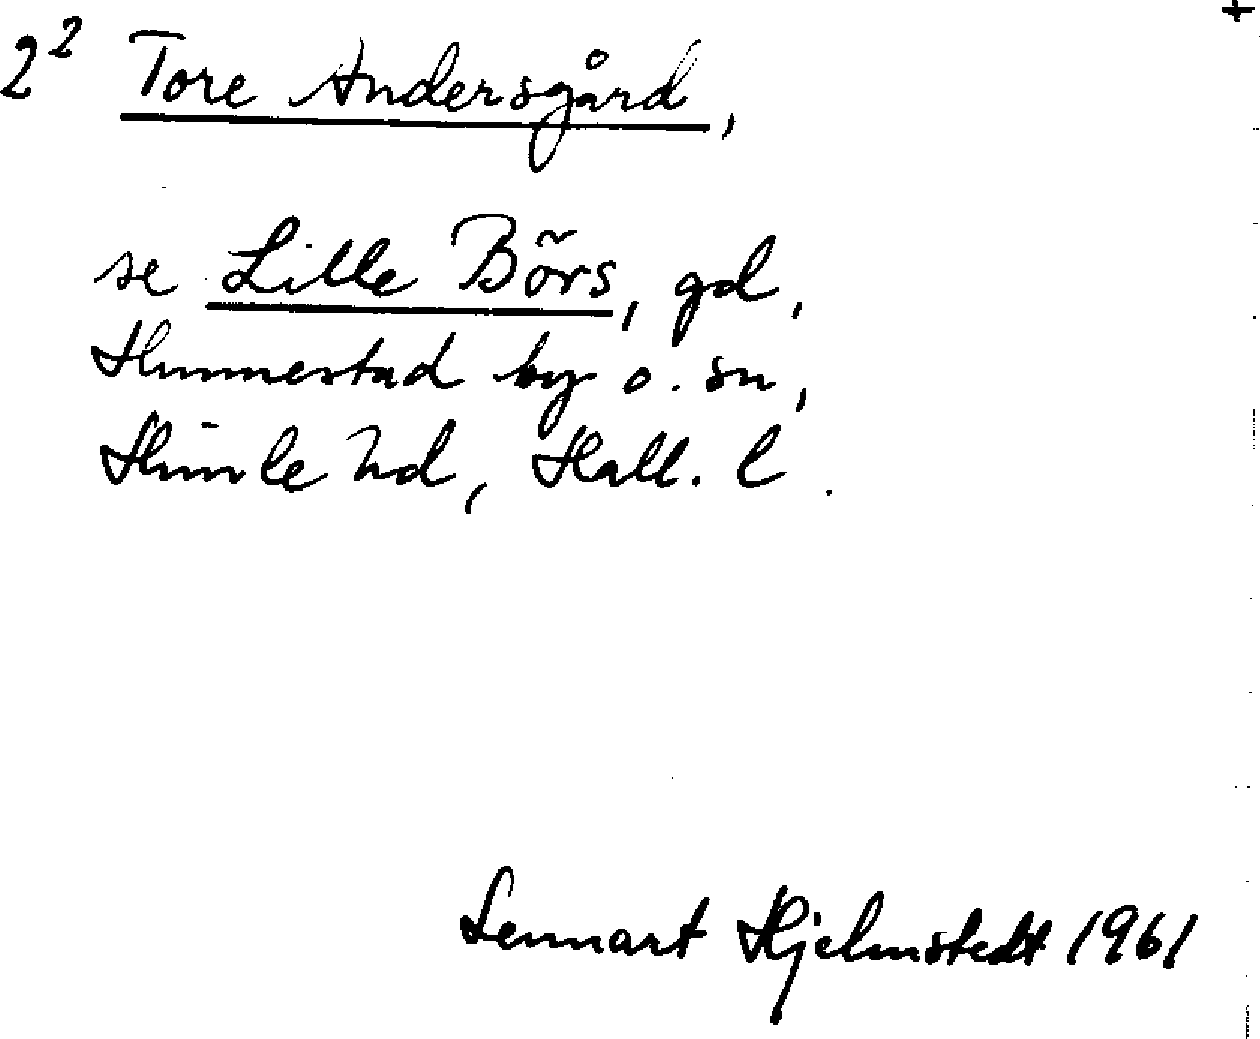 2² Tore Andersgård,
se Lille Börs, gd,
Hunnestad by o. sn,
Himle hd, Hall. l.
Lennart Hjelmstedt 1961